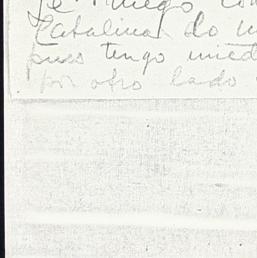 te ruego con
Catalina do m
pues tengo mied
por otro lado